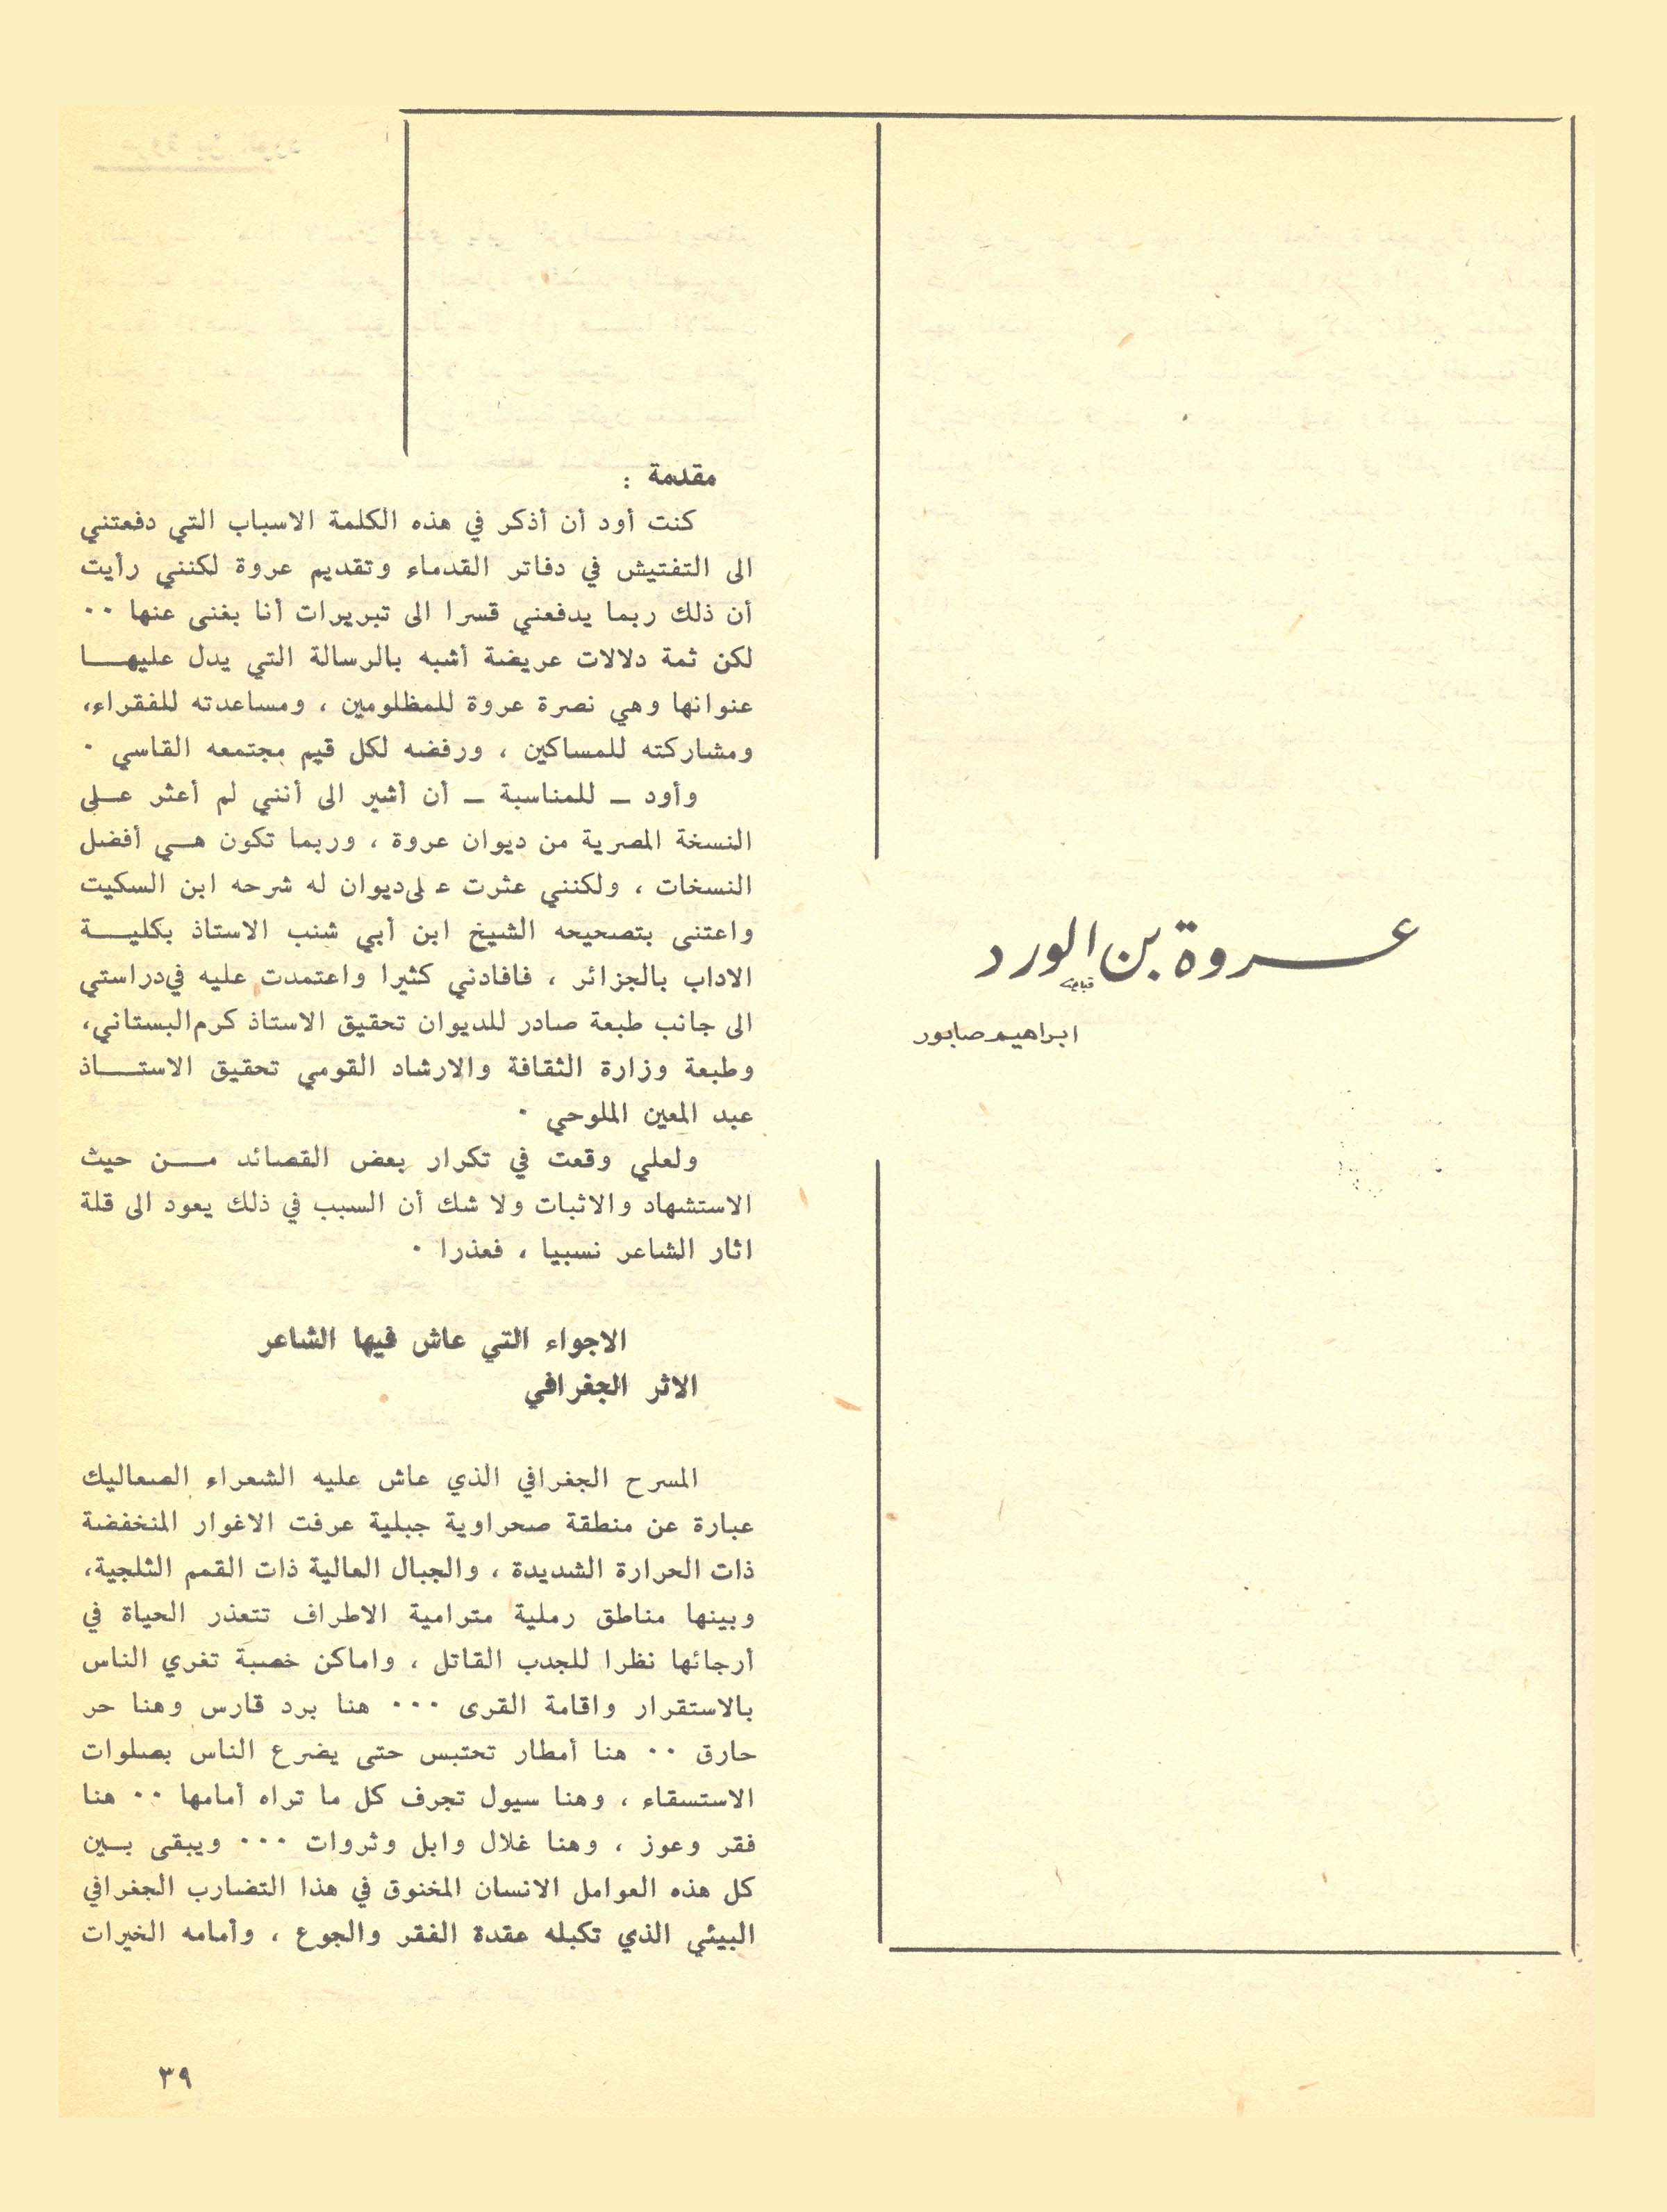 عروة بن الورد
ابراهيم صابور
مقدمة :
كنت أود أن أذكر في هذه الكلمة الاسباب التي دفعتني
الى التفتيش في دفاتر القدماء وتقديم عروة لكنني رأيت
أن ذلك ربما يدفعني قسرا الى تبريرات أنا بغنى عنها ٠٠
لكن ثمة دلالات عريضة أشبه بالرسالة التي يدل عليهـــا
عنوانها وهي نصرة عروة للمظلومين ، ومساعدته للفقراء،
ومشاركته للمساكين ، ورفضه لكل قيم مجتمعه القاسي ٠
وأود ــ للمناسبة ــ أن أشير الى أنني لم أعثر عــلى
النسخة المصرية من ديوان عروة ، وربما تكون هــي أفضل
النسخات ، ولكنني عثرت على ديوان له شرحه ابن السكيت
واعتنى بتصحيحه الشيخ ابن أبي شنب الاستاذ بكليـــة
الاداب بالجزائر ، فافادني كثيرا واعتمدت عليه في دراستي
الى جانب طبعة صادر للديوان تحقيق الاستاذ كرم البستاني،
وطبعة وزارة الثقافة والارشاد القومي تحقيق الاستـــاذ
عبد المعين الملوحي ٠
ولعلي وقعت في تكرار بعض القصائد مـــن حيث
الاستشهاد والاثبات ولا شك أن السبب في ذلك يعود الى قلة
اثار الشاعر نسبيا ، فعذرا ٠
الاجواء التي عاش فيها الشاعر
الاثر الجغرافي
المسرح الجغرافي الذي عاش عليه الشعراء الصعاليك
عبارة عن منطقة صحراوية جبلية عرفت الاغوار المنخفضة
ذات الحرارة الشديدة ، والجبال العالية ذات القمم الثلجية،
وبينها مناطق رملية مترامية الاطراف تتعذر الحياة في
أرجائها نظرا للجدب القاتل ، واماكن خصبة تغري الناس
بالاستقرار واقامة القرى ٠٠٠ هنا برد قارس وهنا حر
حارق ٠٠ هنا أمطار تحتبس حتى يضرع الناس بصلوات
الاستسقاء ، وهنا سيول تجرف كل ما تراه أمامها ٠٠ هنا
فقر وعوز ، وهنا غلال وابل وثروات ٠٠٠ ويبقى بــين
كل هذه العوامل الانسان المخنوق في هذا التضارب الجغرافي
البيئي الذي تكبله عقدة الفقر والجوع ، وأمامه الخيرات
٣٩